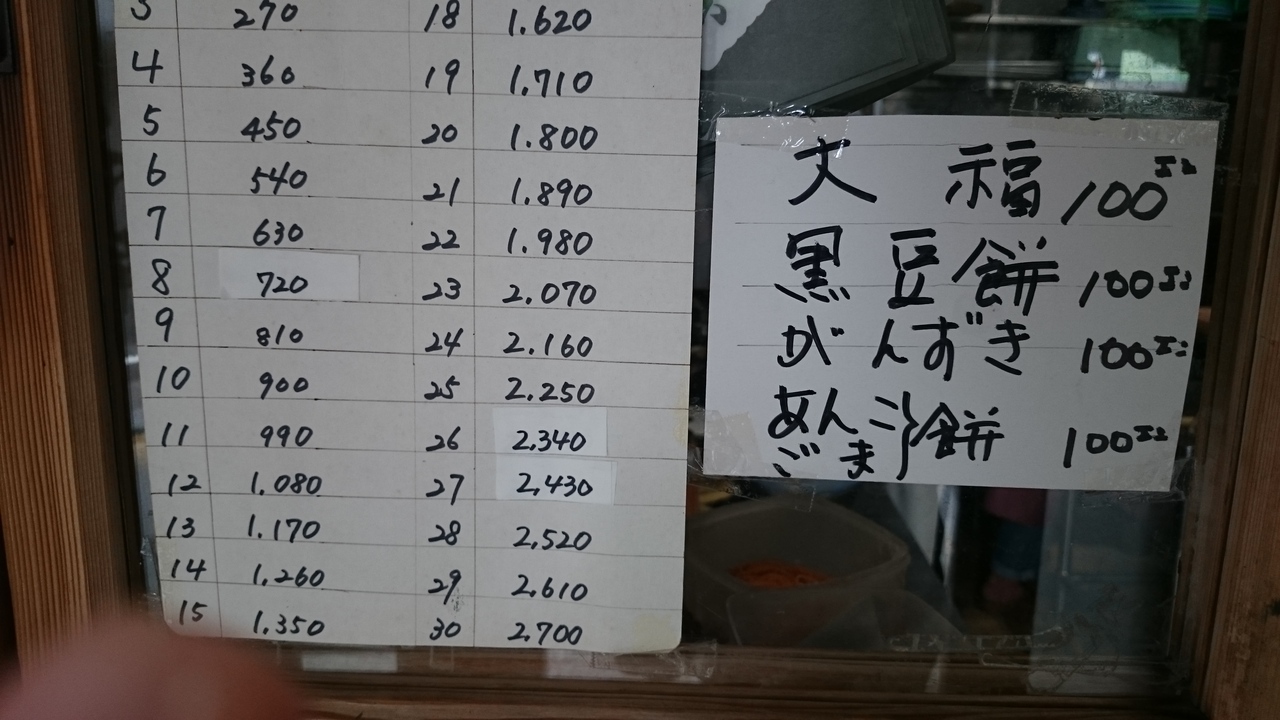 3 270 18 1.620
4 360 19 1.710
5 450 20 1.800
6 540 21 1.890
7 630 22 1.980
8 720 23 2.070
9 810 24 2.160
10 900 25 2.250
11 990 26 2.340
12 1.080 27 2.430
13 1.170 28 2.520
14 1.260 29 2.610
15 1.350 30 2.700
大福 100エン
黒豆餅 100エン
がんずき 100エン
あんこ
ごま 餅 100エン